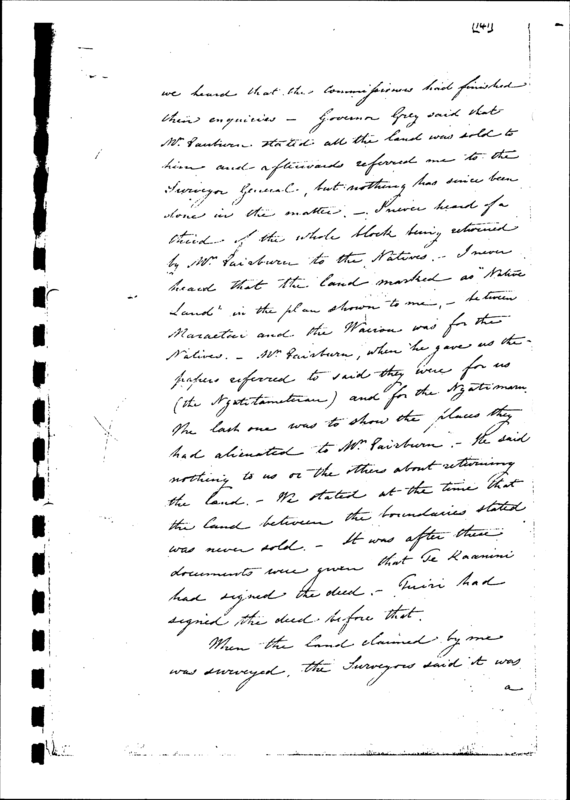 [141]
we heard that the Commissioners had finished
their enquiries — Governor Grey said that
Mr. Fairburn stated all the land was sold to
him and afterwards referred me to the
Surveyor General, but nothing has since been
done in the matter. — I never heard of a
third of the whole block being returned
by Mr. Fairburn to the Natives. — I never
heard that the land marked as "Native
Land" in the plan shown to me, — between
Maraetai and the Wairoa was for the
Natives. — Mr. Fairburn, when he gave us the
papers referred to said they were for us
(the Ngatitameterau) and for the Ngatimaru.
The last one was to show the places they
had alienated to Mr. Fairburn. — He said
nothing to us or the others about returning
the land. — We stated at the time that
the land between the boundaries stated
was never sold. — It was after these
documents were given that Te Kaanini
had signed the deed. — Tuiri had
signed the deed before that.
When the land claimed by me
was surveyed, the Surveyors said it was
a